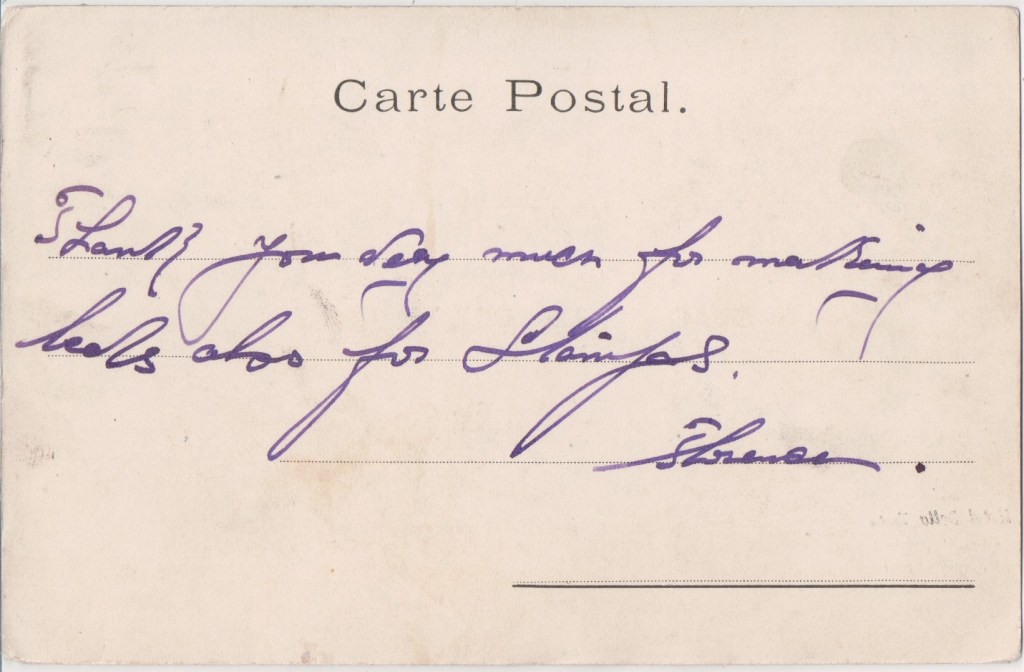 Carte Postal.
Thank you very much for making
also for Stamps.
Florence.